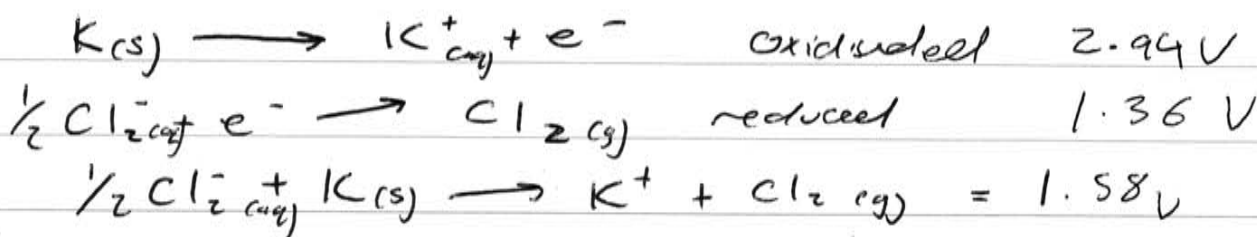 K(s) ⟶ K⁺(aq) + e⁻ oxidised 2.94 V
½ Cl₂⁻(aq) + e⁻ ⟶ Cl₂(g) reduced 1.36 V
½ Cl₂⁻(aq) + K(s) ⟶ K⁺ + Cl₂(g) = 1.58 V